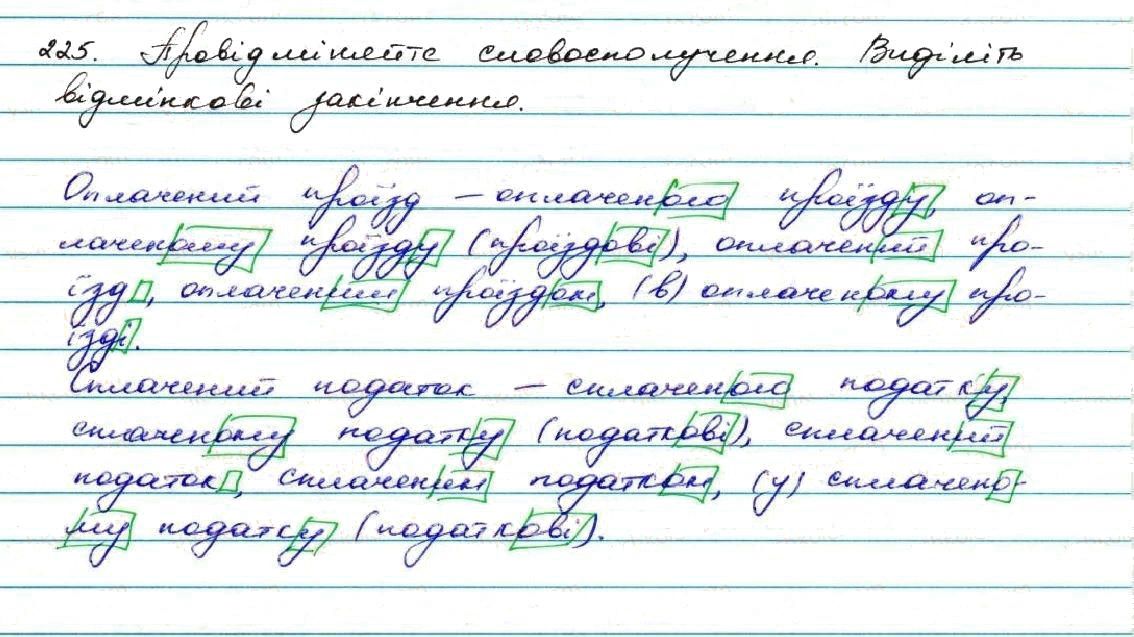 225. Провідміняйте словосполучення. Виділіть
відмінкові закінчення.
Оплачений проїзд – оплаченого проїзду, оп-
лаченому проїзду (проїздові), оплачений про-
їзд, оплаченим проїздом, (в) оплаченому про-
їзді.
Сплачений податок – сплаченого податку,
сплаченому податку (податкові), сплачений
податок, сплаченим податком, (у) сплачено-
му податку (податкові).